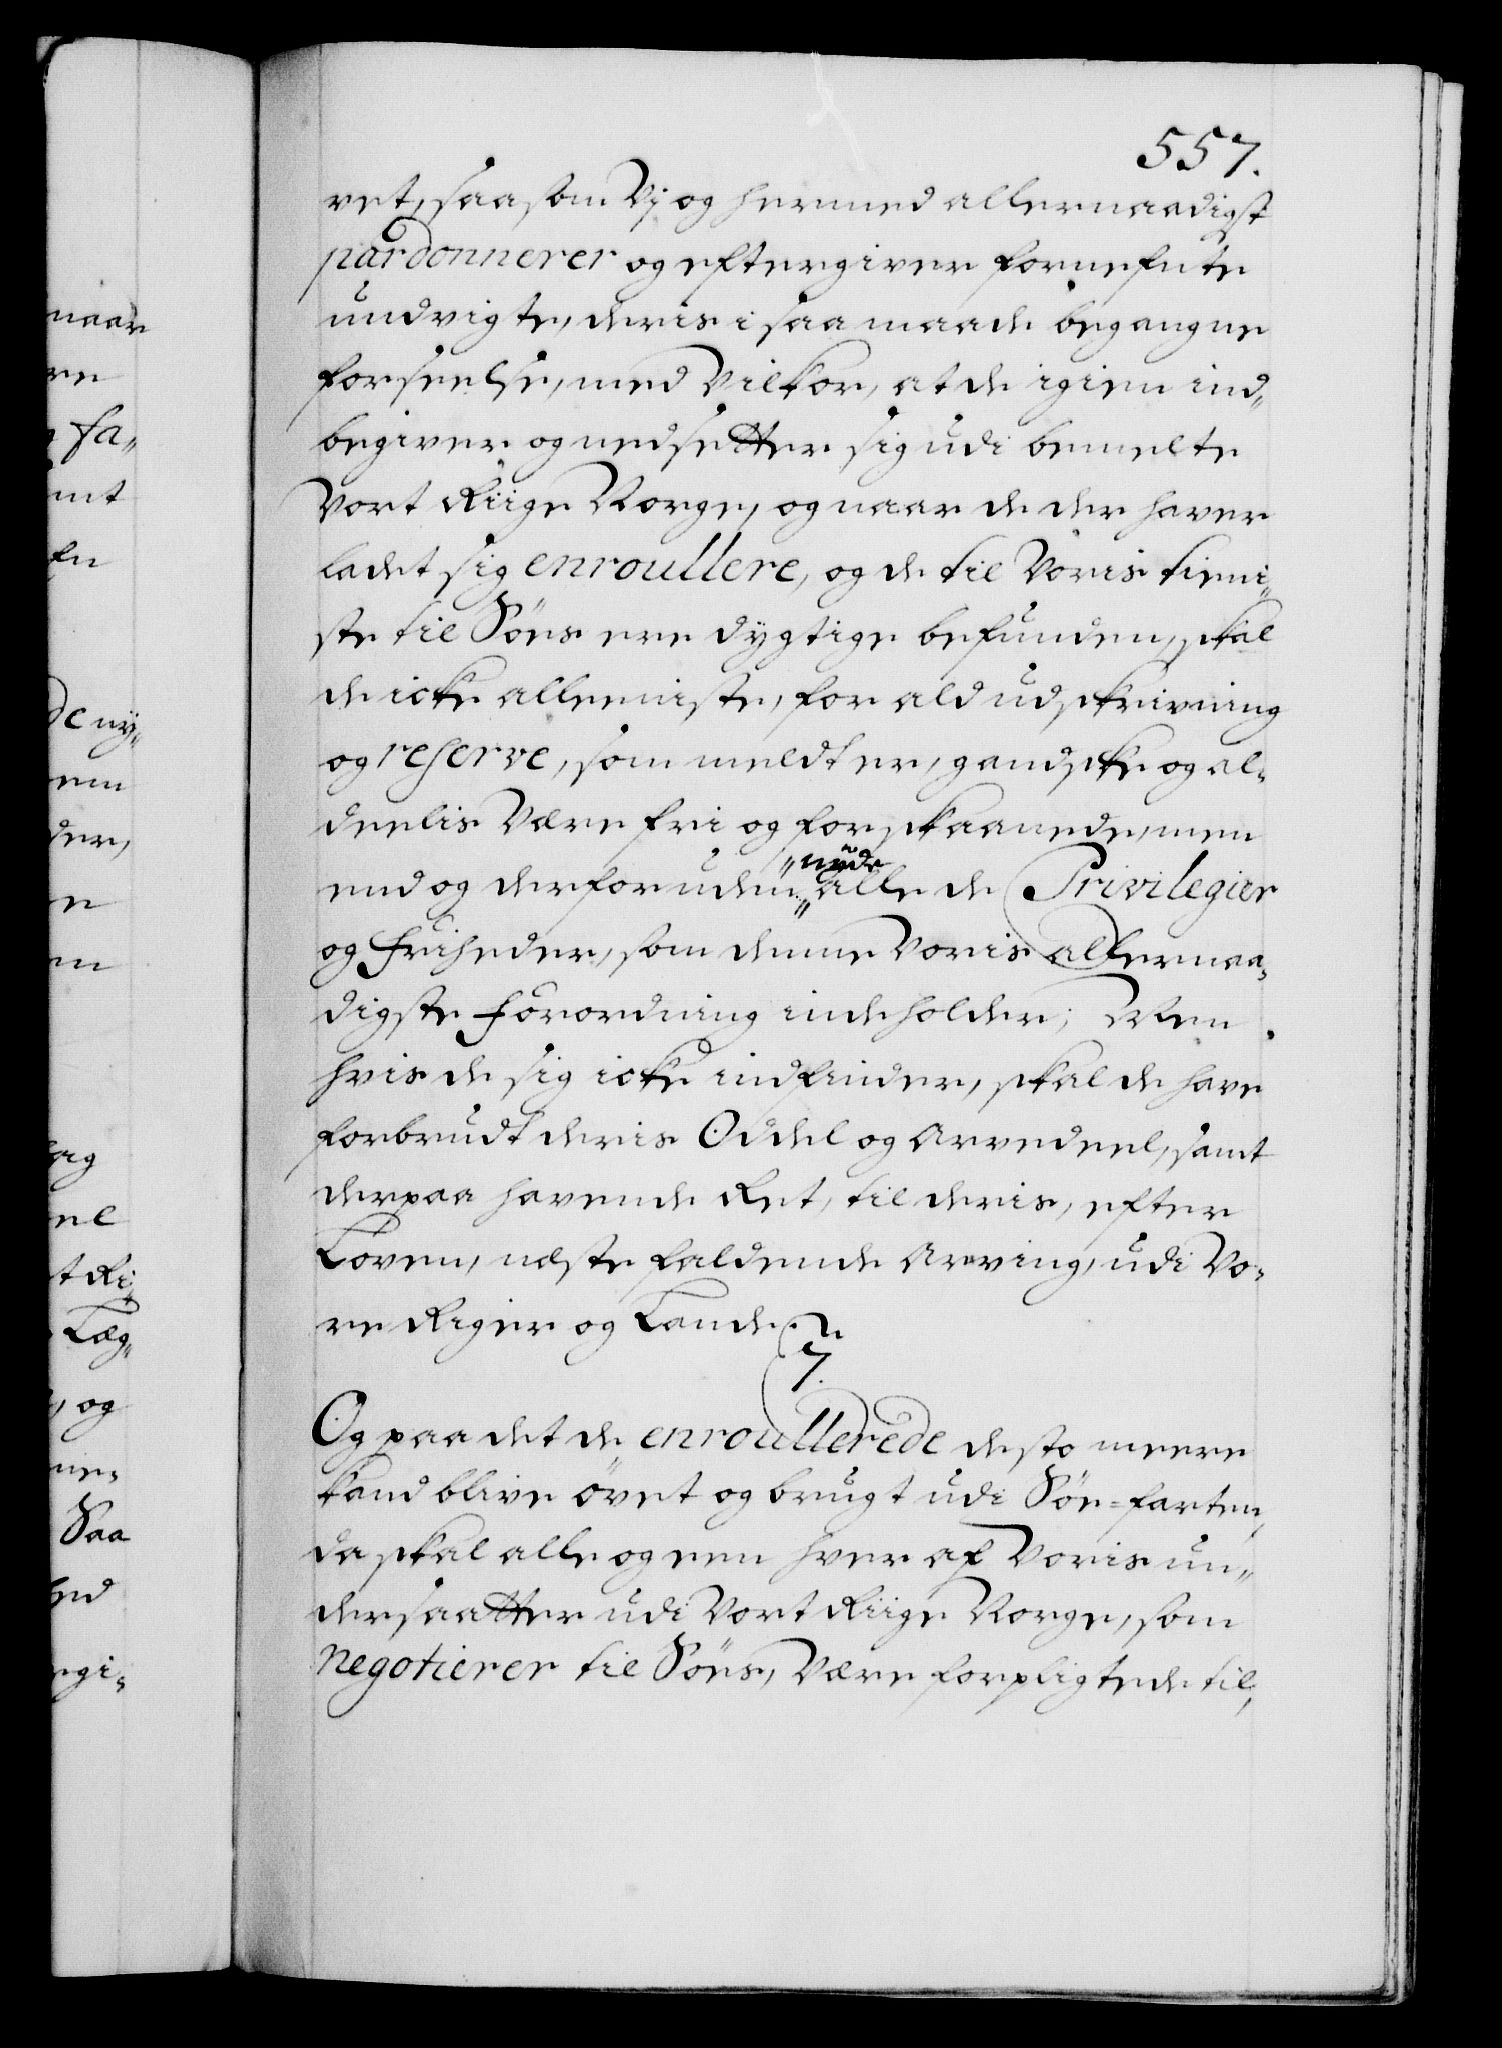 557.
ret, saasom Vj og hermed allernaadigst
pardonnerer og eftergiver fornefnte
undvigte, deris i saa maade begangne
forseelse, med Vilkor, at de igien ind„
begiver og nedsetter sig udi bemelte
Vort Riige Norge, og naar de der haver
ladet sig enroullere, og de til Voris tieni„
ste til Söes ere dygtige befunden, skal
de icke alleeniste, for ald udskrivning
og reserve, som meldt er, gandske og al„
deelis Være fri og forskaanede, men
„nyde
end og derforuden „ alle de Privilegier
og Friheder, som denne Voris allernaa„
digste Forordning indeholder; Men
hvis de sig icke indfinder, skal de have
forbrudt deris Oddel og Arvedeel, samt
derpaa havende Ret, til deris, efter
Loven, næste faldende Arving, udi Vo„
re Riger og Lande.
7.
Og paa det de enroullerede desto meere
kand blive övet og brugt udi Söe=farten,
da skal alle og een hver af Voris un„
dersaatter udi Vort Riige Norge, som
negotierer til Söes, Være forpligtede til,
naar
re
fa„
mt
de ny„
em
der,
e
ag
eel
t Ri„
Læg„
, og
ne„
Saa
ed
egi„